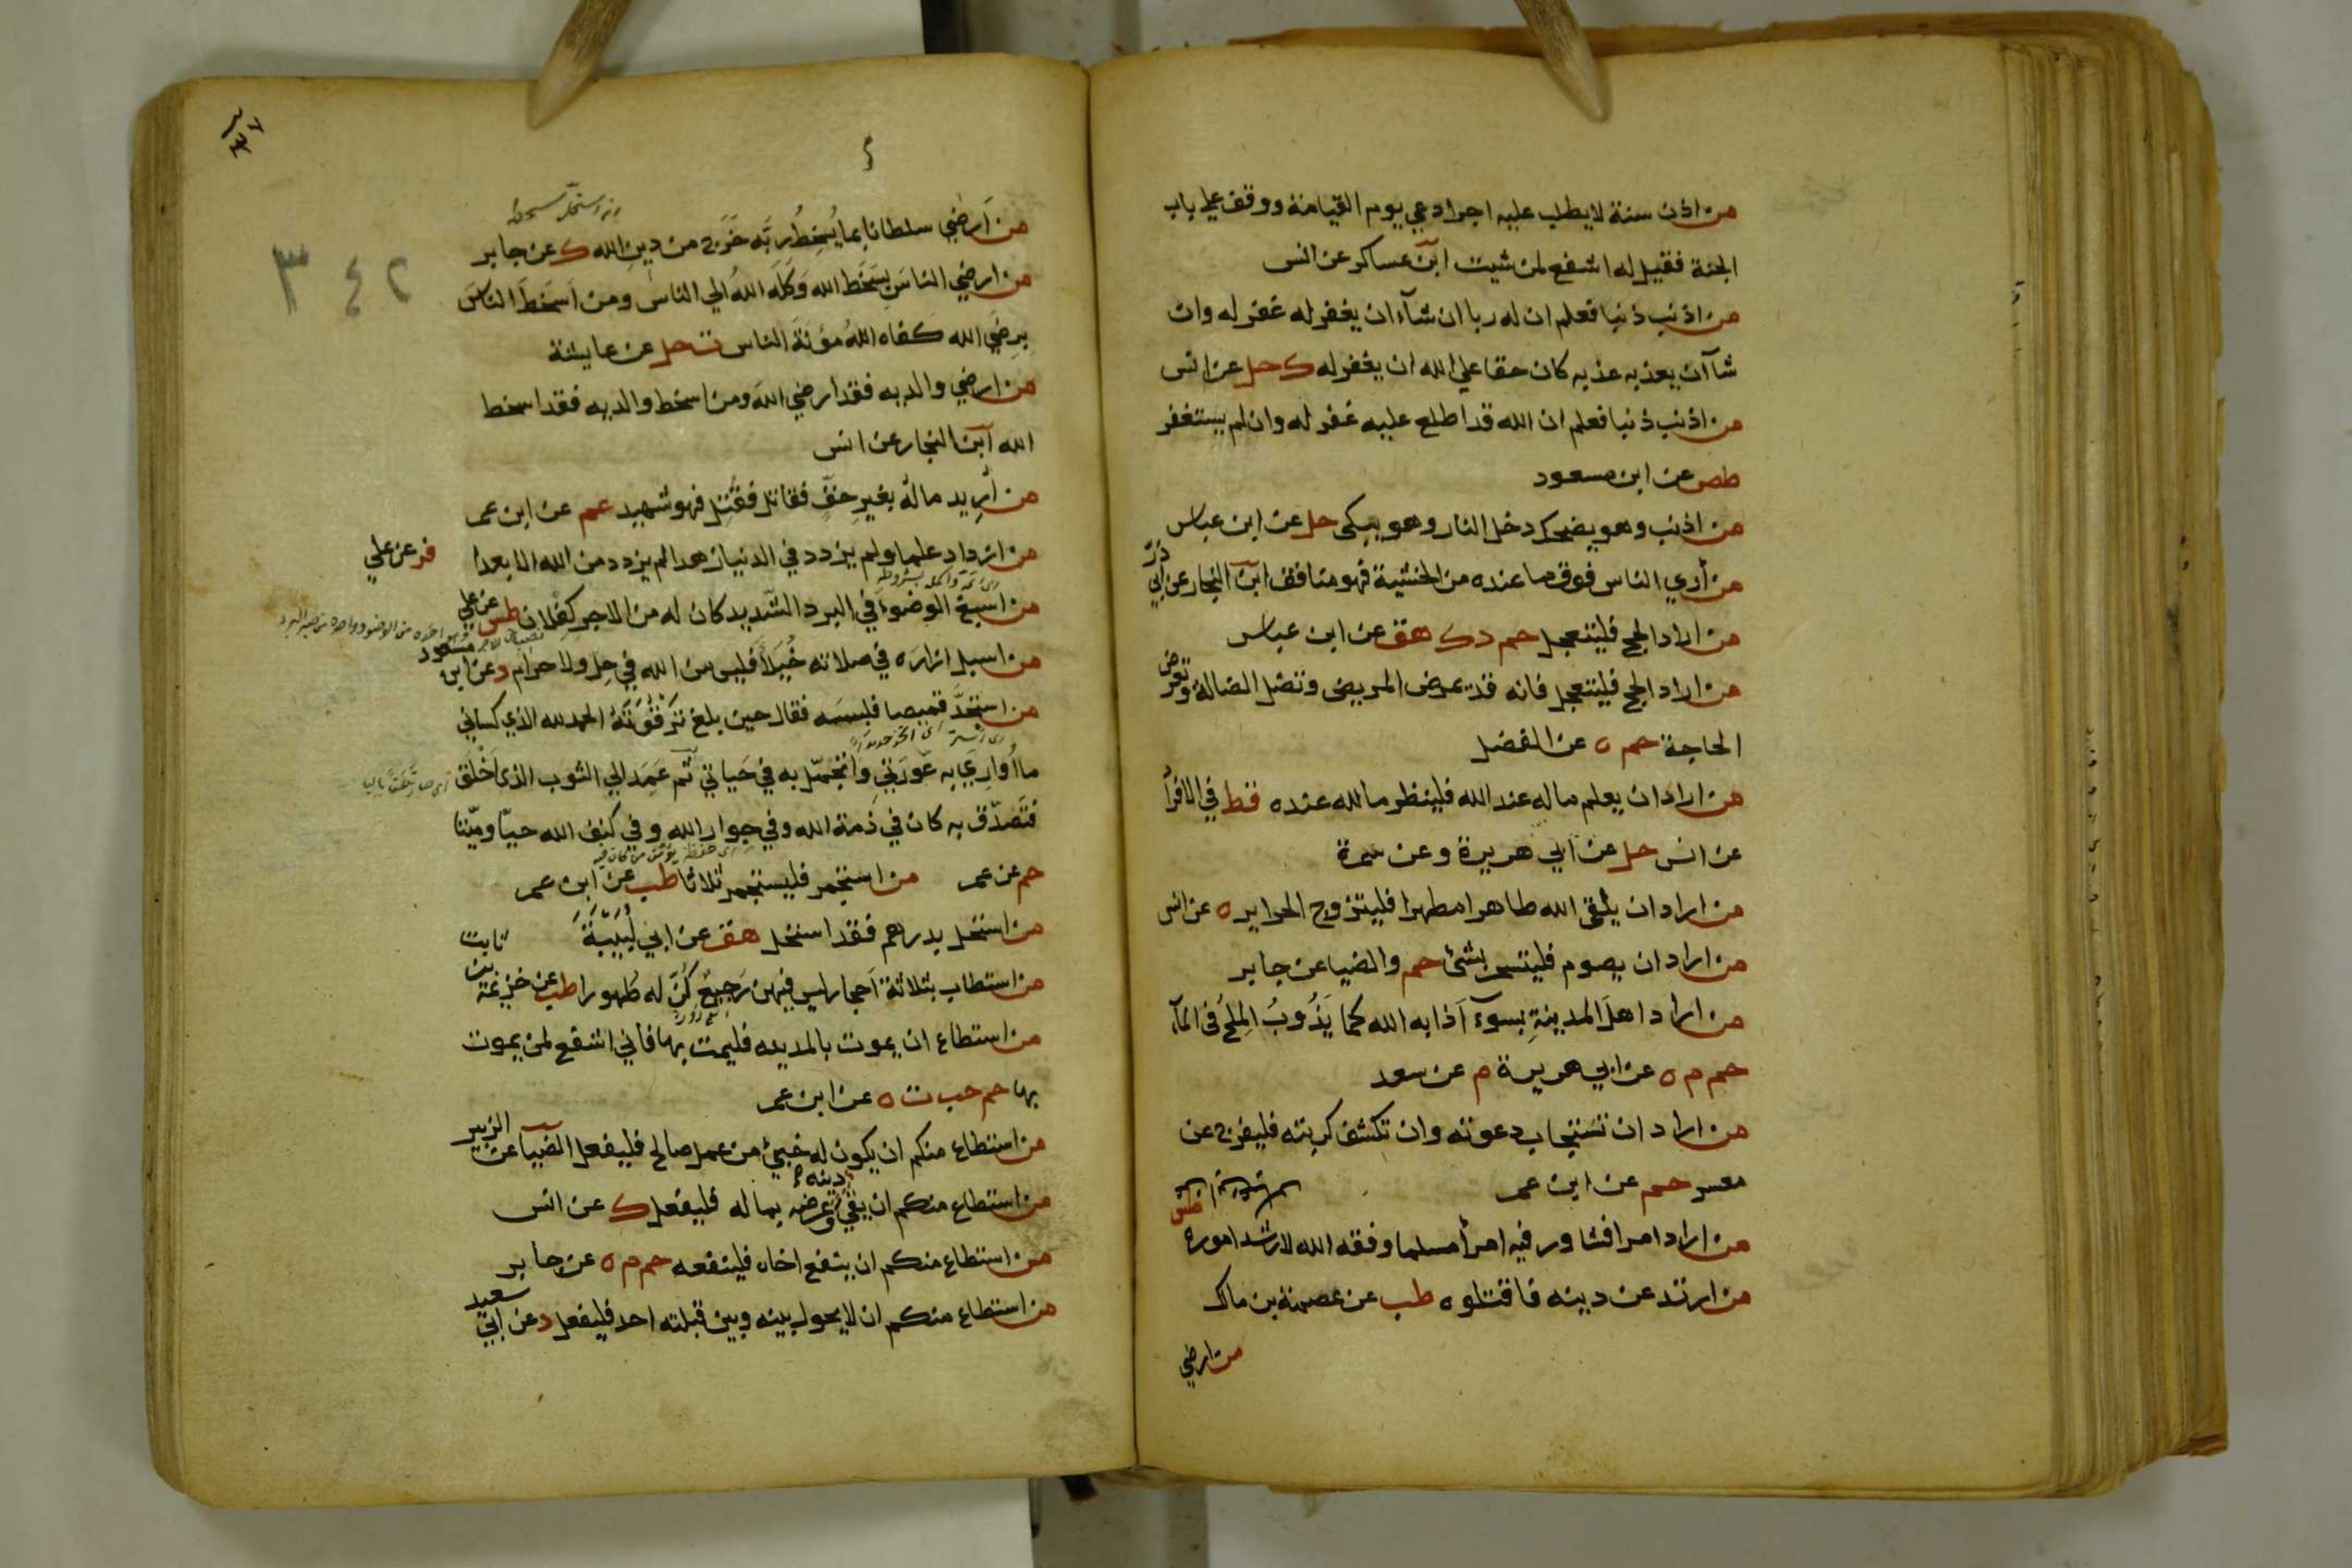 من اذن سنة لا يطلب عليه اجرا دعي يوم القيامة ووقف علي باب
الجنة فقيل له اشفع لمن شيت ابن عساكر عن انس
من اذنب ذنبا فعلم ان له ربا ان شآء ان يغفر له غفر له وان
شآ ان يعذبه عذبه كان حقا علي الله ان يغفر له ك حل عن انس
من اذنب ذنبا فعلم ان الله قد اطلع عليه غفر له وان لم يستغفر
طص عن ابن مسعود
من اذنب وهو يضحك دخل النار وهو يبكى حل عن ابن عباس
من أري الناس فوق ما عنده من الخشية فهو منافق ابن النجار عن ابي ذرّ
من اراد الحج فليتعجل حم د ك هق عن ابن عباس
من اراد الحج فليتعجل فانه قد يمرض المريض وتضل الضالة وتعرض
الحاجة حم ه عن الفضل
من اراد ان يعلم ماله عند الله فلينظر ما لله عنده قط في الافراد
عن انس حل عن ابي هريرة وعن سمرة
من اراد ان يلقى الله طاهرا مطهرا فليتزوج الحراير ه عن انس
من اراد ان يصوم فليتسحر بشئ حم والضيا عن جابر
من اراد اهلَ المدينةِ بسوءٍ اَذابه الله كما يَذُوبُ المِلحُ في المآء
حم م ه عن ابي هريرة م عن سعد
من اراد ان تستجاب دعوته وان تكشف كربته فليفرج عن
معسر حم عن ابن عمر
من اراد امرا فشاور فيه امرأ مسلما وفقه الله لارشد اموره طس
من ارتد عن دينه فاقتلوه طب عن عصمة بن مالك
من ارضي
٣٤٢
من اَرضي سلطانا بما يُسخِطُ ربَّه خَرَج من دِينِ الله ك عن جابر
من ارضي الناسَ بسَخَط الله وَكَلَه اللهُ الي الناس ومن اَسخَطَ الناسَ
بِرِضَي الله كفاه اللهُ مؤنةَ الناس ت حل عن عايشة
من ارضي والديه فقد ارضي الله ومن اسخط والديه فقد اسخط
الله ابن النجار عن انس
من أرِيد مالُه بغيرِ حقٍّ فقاتل فقُتِل فهو شهيد عم عن ابن عمر
من ازداد علما ولم يزدد في الدنيا زهدا لم يزدد من الله الا بعدا فر عن علي
من اسبغ الوضوءَ في البرد الشديد كان له من الاجر كِفْلان طس عن علي
من اسبل ازاره في صلاته خُيَلاً فليس من الله في حِل ولا حرام د عن ابن مسعود
من استَجَدَّ قميصا فلبسَه فقال حين بلغ تَرْقُوَتَه الحمد لله الذي كساني
ما اُوارِي به عَورَتي واَتجمّل به في حَياتي ثُم عَمَد الي الثوب الذى اَخْلَق
فتَصَدّق به كان في ذمة الله وفي جِوار الله وفي كنف الله حيّا وميّتا
حم عن عمر من استجمر فليستجمر ثلاثا طب عن ابن عمر
من استحل بدرهم فقد استحل هق عن ابي لُبَيْبَةَ
من استطاب بثلاثة اَحجار ليس فيهن رَجِيعٌ كُنّ له طُهورا طب عن خزيمة بن ثابت
من استطاع ان يموت بالمدينه فليمت بها فاني اشفع لمن يموت
بها حم حب ت ه عن ابن عمر
من استطاع منكم ان يكون له خبئٌ من عمل صالح فليفعل الضيآ عن الزبير
من استطاع منكم ان يقي دينه وعرضه بماله فليفعل ك عن انس
من استطاع منكم ان ينفع اخاه فلينفعه حم م ه عن جابر
من استطاع منكم ان لا يحول بينه وبين قبلته احد فليفعل د عن ابي سعيد